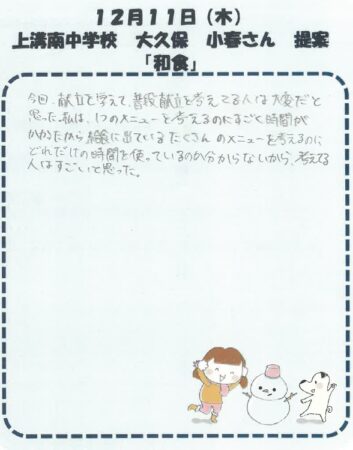 １２月１１日（木）
上溝南中学校　大久保　小春さん　提案
「和食」
今回、献立を考えて、普段献立を考えてる人は大変だと
思った。私は、1つのメニューを考えるのにすごく時間が
かかったから給食に出ているたくさんのメニューを考えるのに
どれだけの時間を使っているのか分からないから、考えてる
人はすごいと思った。